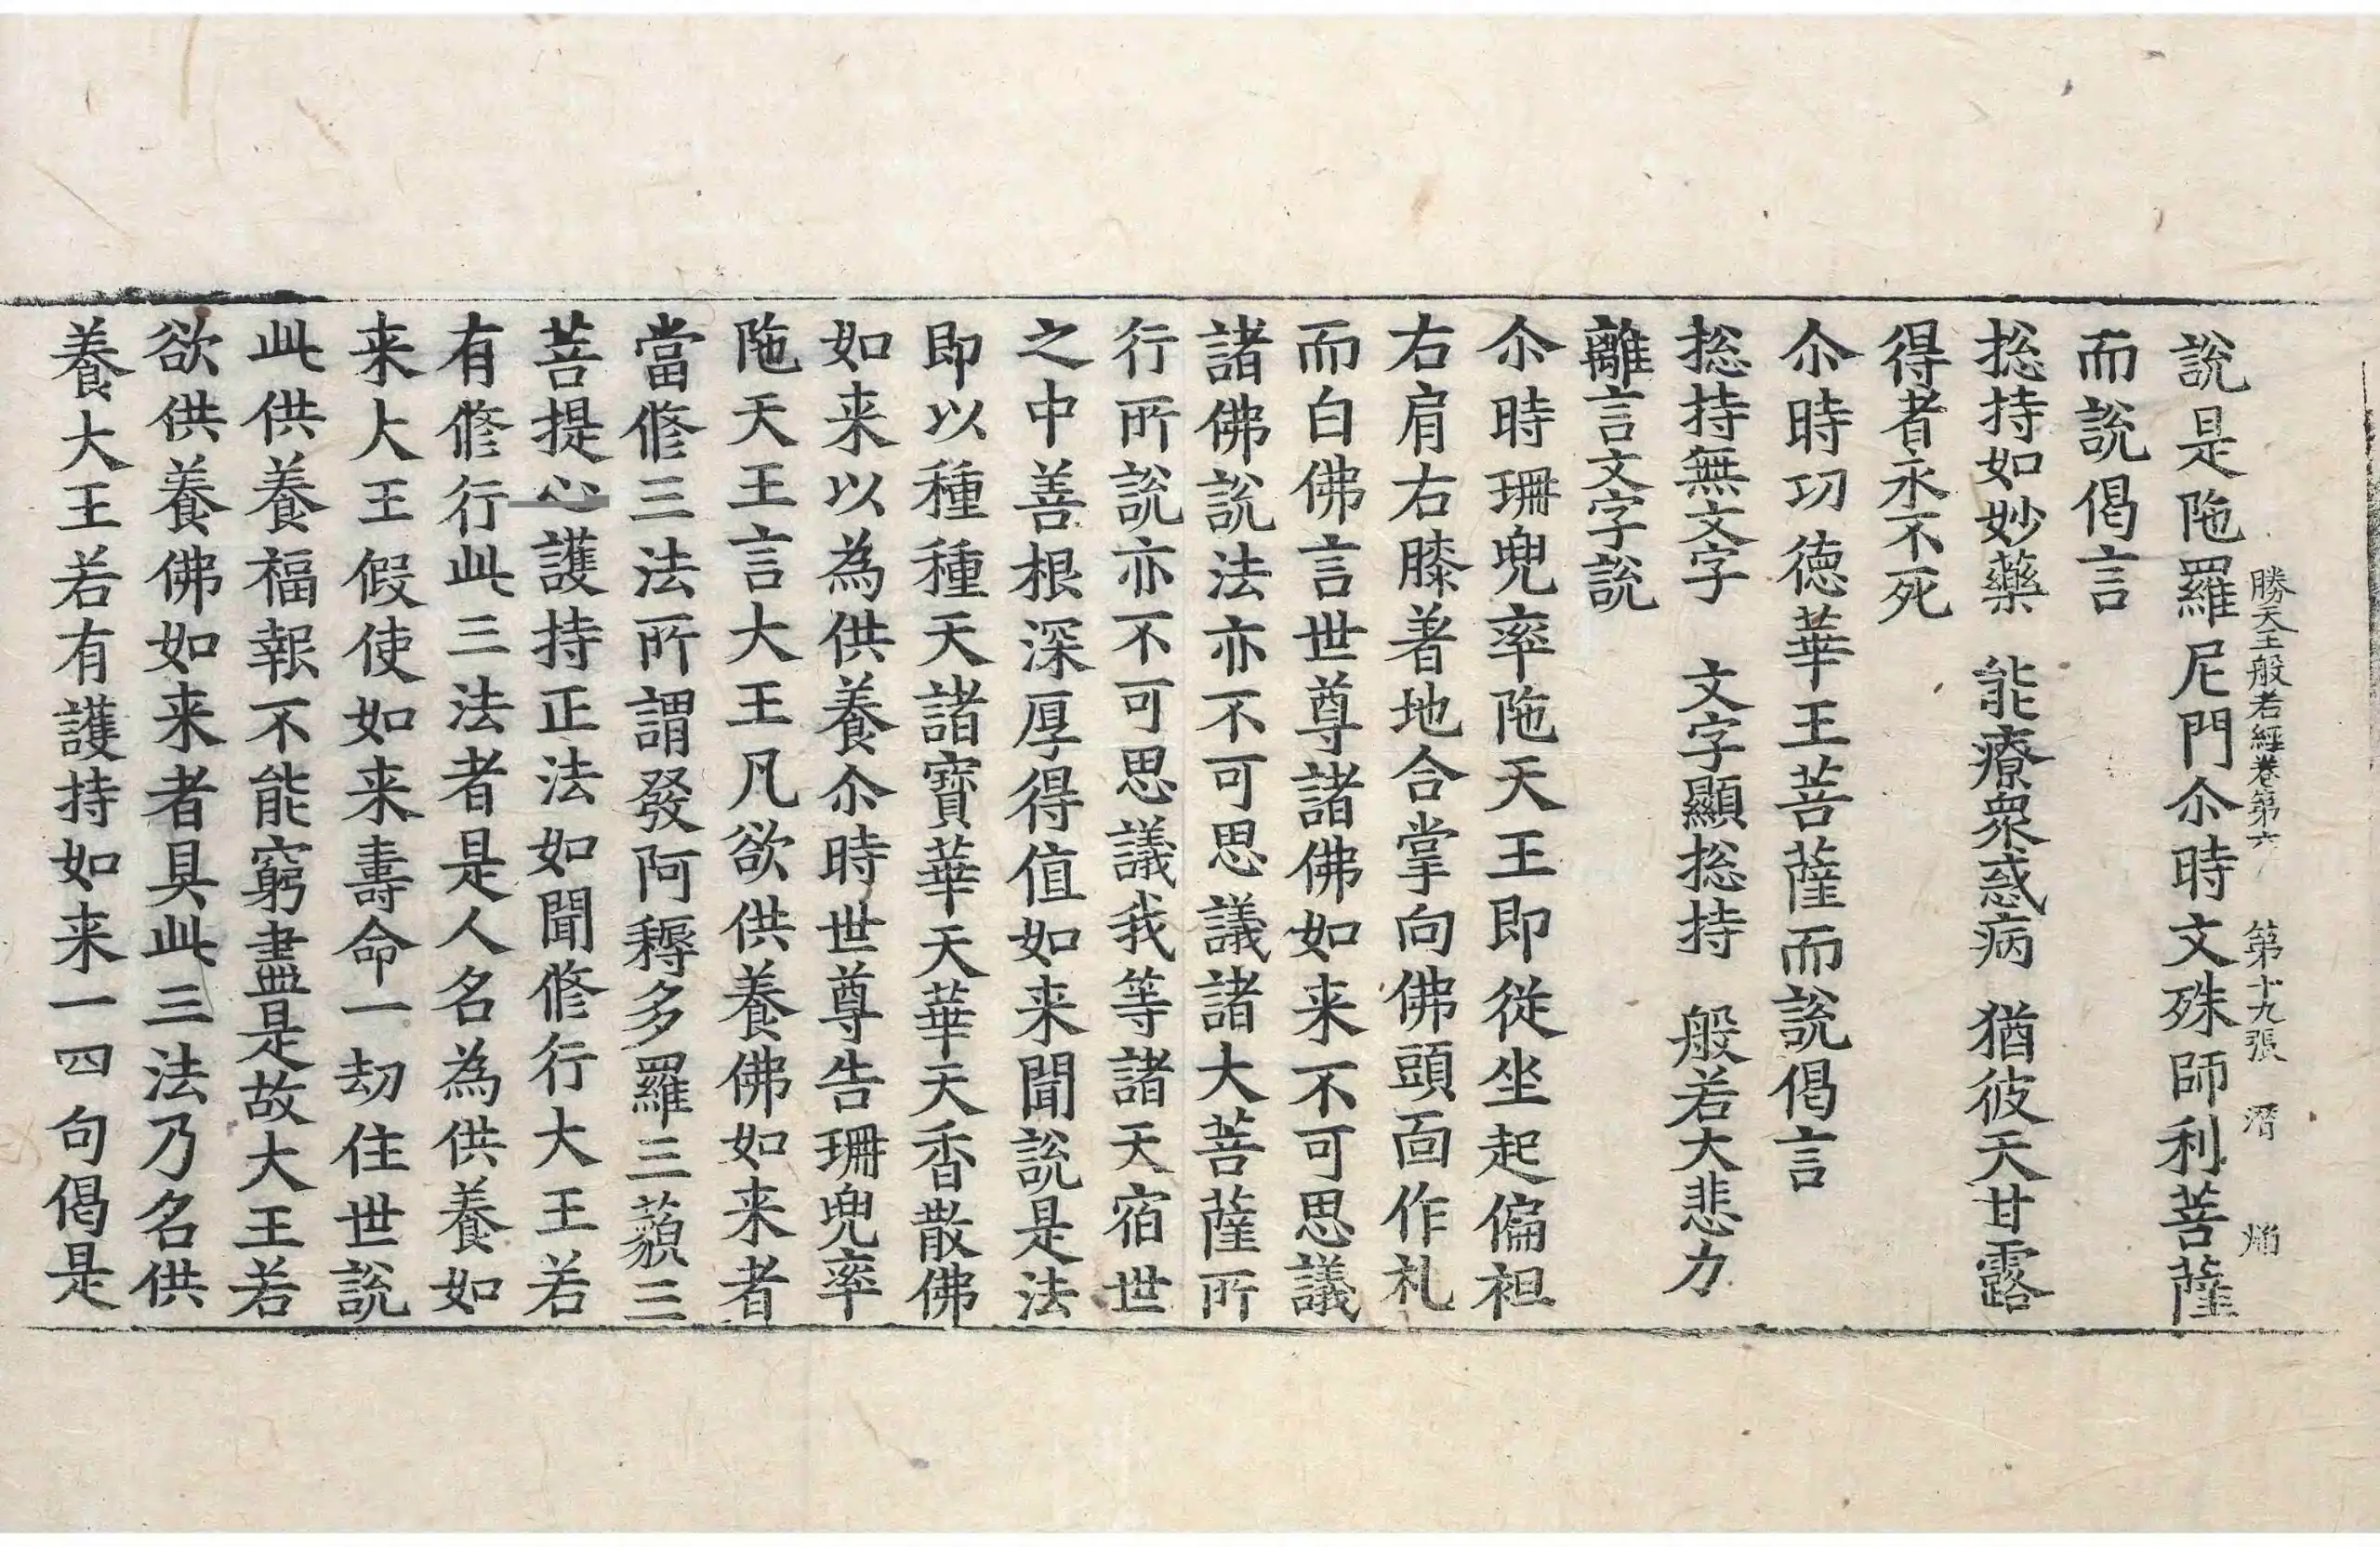 勝天王般若經卷第六 第十九張 潛 焔
說是陁羅尼門尒時文殊師利菩薩
而說偈言
揔持如妙藥 能療衆惑病 猶彼天甘露
得者永不死
尒時功德華王菩薩而說偈言
揔持無文字 文字顯揔持 般若大悲力
離言文字說
尒時珊兜率陁天王即從坐起偏袒
右肩右膝著地合掌向佛頭面作礼
而白佛言世尊諸佛如来不可思議
諸佛說法亦不可思議諸大菩薩所
行所說亦不可思議我等諸天宿世
之中善根深厚得值如来聞說是法
即以種種天諸寶華天華天香散佛
如来以為供養尒時世尊告珊兜率
陁天王言大王凡欲供養佛如来者
當修三法所謂發阿耨多羅三藐三
菩提心護持正法如聞修行大王若
有修行此三法者是人名為供養如
来大王假使如来壽命一劫住世說
此供養福報不能窮盡是故大王若
欲供養佛如来者具此三法乃名供
養大王若有護持如来一四句偈是